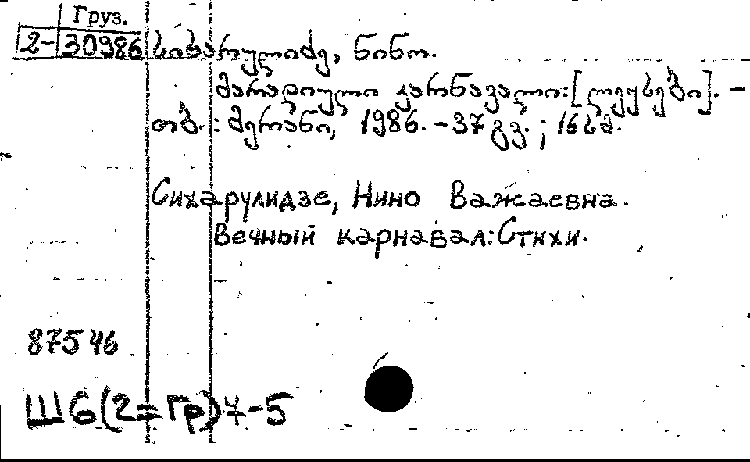 Груз.
2-30986 სიხარულიძე, ნინო.
მარადიული კარნავალი: [ლექსები]. -
თბ. : მერანი, 1986. - 37 გვ. ; 16 სმ.
Сихарулидзе, Нино Важаевна.
Вечный карнавал: Стихи.
87546
Ш6(2=Гр)7-5